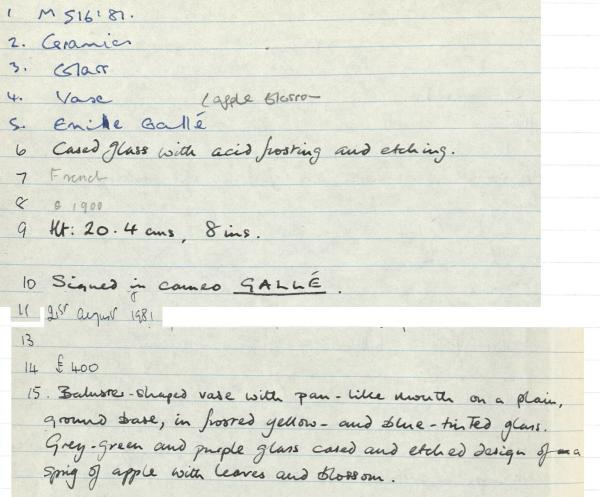 1 M 516:81.
2. Ceramics
3. Glass
4. Vase (apple blossom
5. Emile Gallé
6 Cased glass with acid frosting and etching.
7 French
8 c 1900
9 Ht: 20.4 cms, 8 ins.
10 Signed in cameo GALLÉ.
11 21st August 1981
13
14 £400
15. Baluster-shaped vase with pan-like mouth on a plain,
ground base, in frosted yellow- and blue-tinted glass.
Grey-green and purple glass cased and etched design of a
sprig of apple with leaves and blossom.